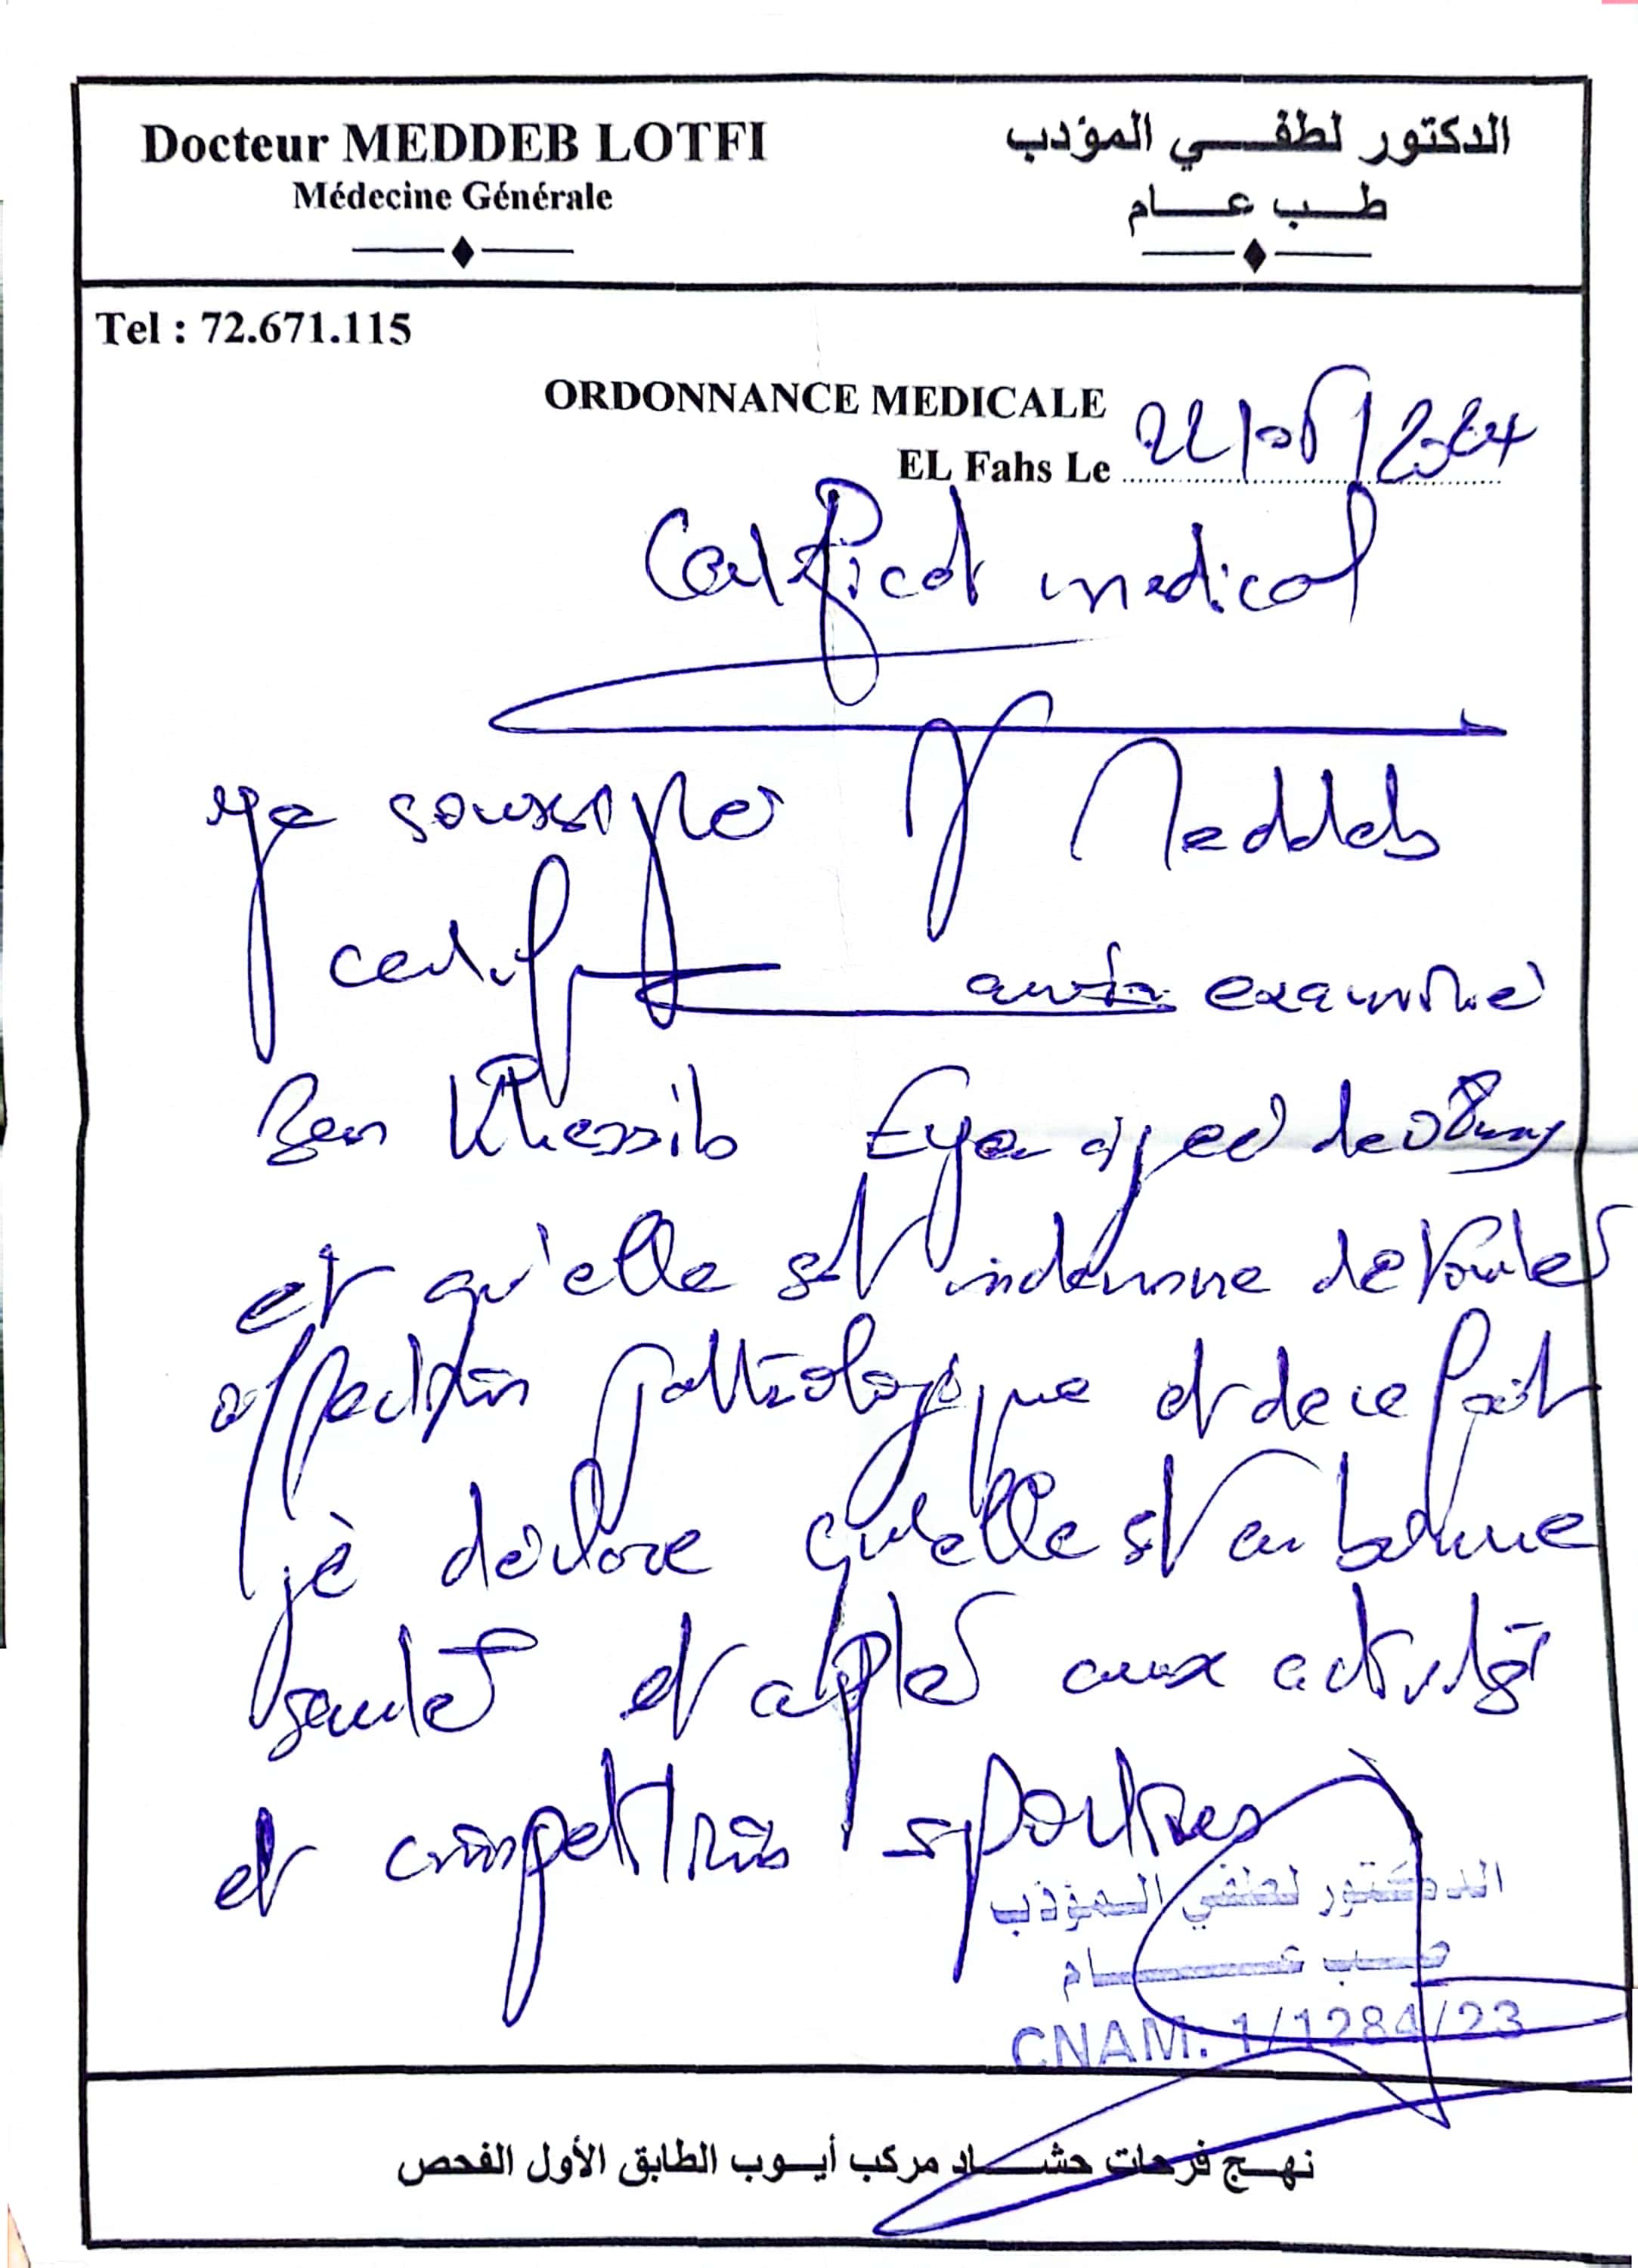 Docteur MEDDEB LOTFI
Médecine Générale
الدكتور لطفي المؤدب
طب عام
Tel : 72.671.115
ORDONNANCE MEDICALE
EL Fahs Le
Certificat medical
Je soussigné Meddeb
certifie avoir examiné
Ben Khessib Eya agee de ans
et qu'elle est indemne de toutes
affection pathologique et de ce fait
je déclare qu'elle est en bonne
santé et apte aux activités
et competitions sportives
الدكتور لطفي المؤدب
طب عام
CNAM. 1/1284/23
نهج فرحات حشاد مركب أيوب الطابق الأول الفحص